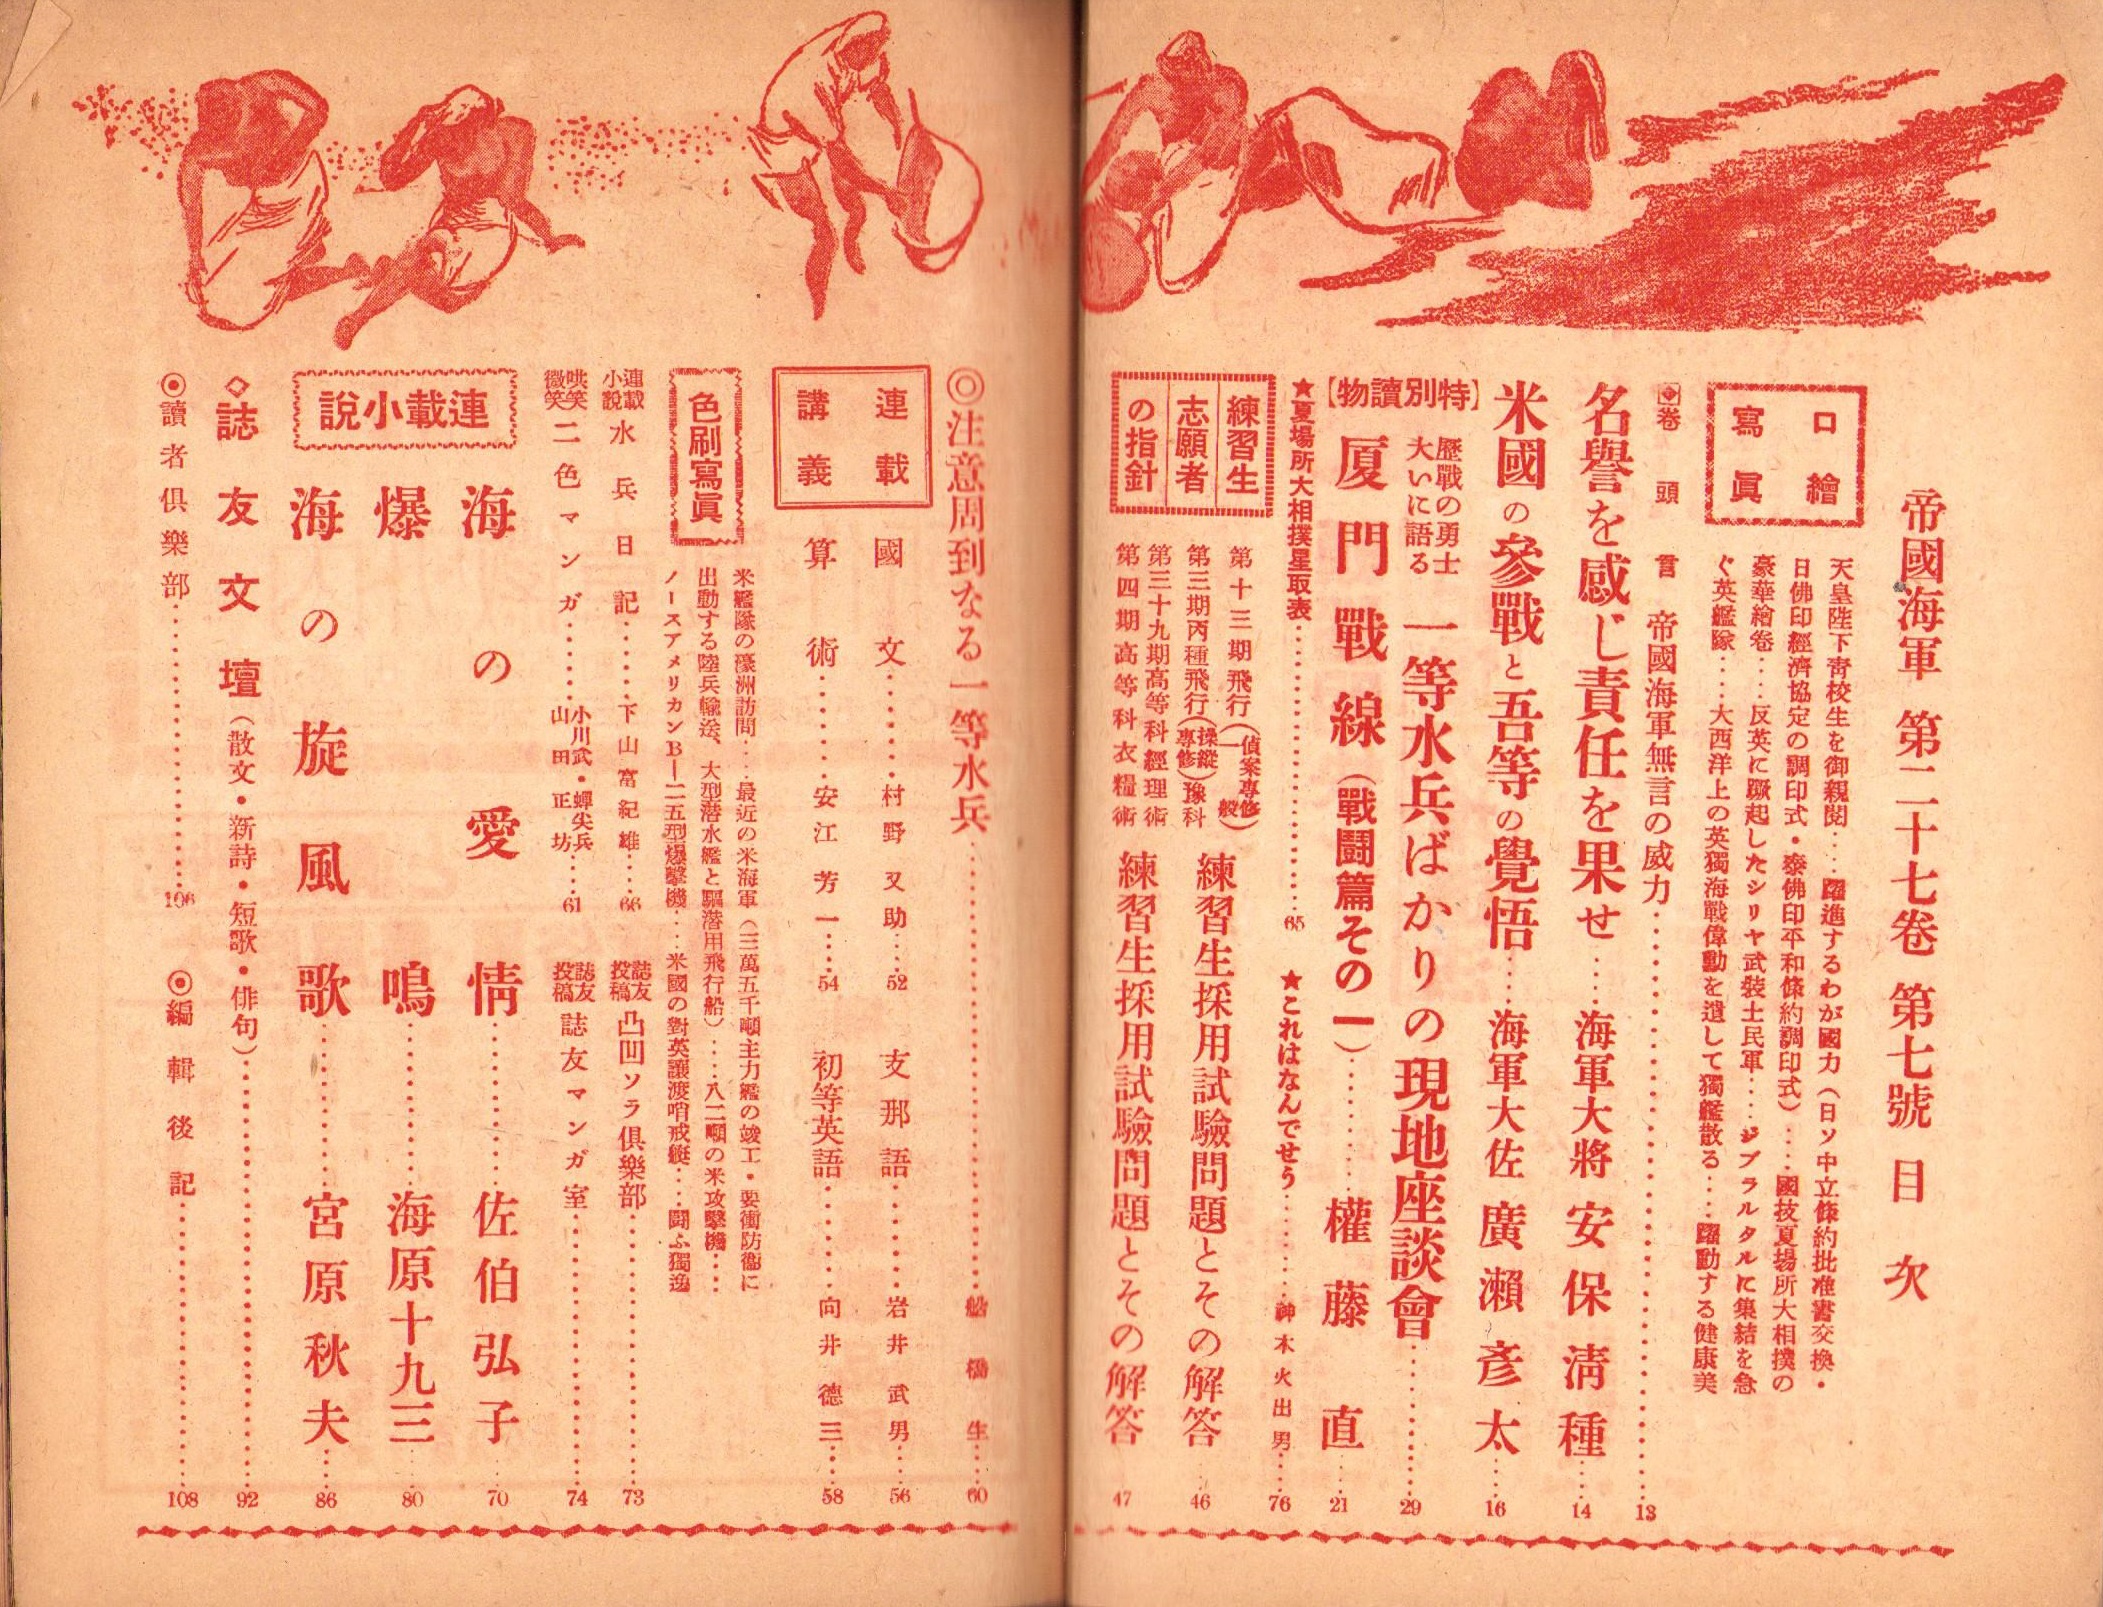 帝國海軍 第二十七卷 第七號 目次
口繪
寫眞
天皇陛下靑校生を御親閱‥‥躍進するわが國力（日ソ中立條約批准書交換・
日佛印經濟協定の調印式・泰佛印平和條約調印式）‥‥國技夏場所大相撲の
豪華繪卷‥‥反英に蹶起したシリヤ武裝土民軍‥‥ジブラルタルに集結を急
ぐ英艦隊‥‥大西洋上の英獨海戰偉勳を遺して獨艦散る‥‥躍動する健康美
卷頭言 帝國海軍無言の威力……13
名譽を感じ責任を果せ……海軍大將 安保淸種……14
米國の參戰と吾等の覺悟……海軍大佐 廣瀨彥太……16
【特別讀物】
歷戰の勇士
大いに語る
一等水兵ばかりの現地座談會……29
厦門戰線（戰鬪篇その一）……權藤直……21
★夏場所大相撲星取表……65
★これはなんでせう……神木火出男……76
練習生
志願者
の指針
第十三期飛行（偵案專修 一般）
第三期丙種飛行（操縱專修）豫科
練習生採用試驗問題とその解答……46
第三十九期高等科經理術
第四期高等科衣糧術
練習生採用試驗問題とその解答……47
◎注意周到なる一等水兵……船橋生……60
連載
講義
國文……村野又助……52
支那語……岩井武男……56
算術……安江芳一……54
初等英語……向井德三……58
色刷寫眞
米艦隊の濠洲訪問‥‥最近の米海軍（三萬五千噸主力艦の竣工・要衝防衞に
出動する陸兵輸送、大型潜水艦と驅潜用飛行船）‥‥八二噸の米攻擊機‥‥
ノースアメリカンB―二五型爆擊機‥‥米國の對英讓渡哨戒艇‥‥鬪ふ獨逸
連載小說 水兵日記……下山富紀雄……66
誌友投稿 凸凹ソラ俱樂部……73
哄笑微笑 二色マンガ……小川武・蟬尖兵 山田正坊……61
誌友投稿 誌友マンガ室……74
連載小說
海の愛情……佐伯弘子……70
爆鳴……海原十九三……80
海の旋風歌……宮原秋夫……86
◇誌友文壇（散文・新詩・短歌・俳句）……92
◎讀者俱樂部……106
◎編輯後記……108